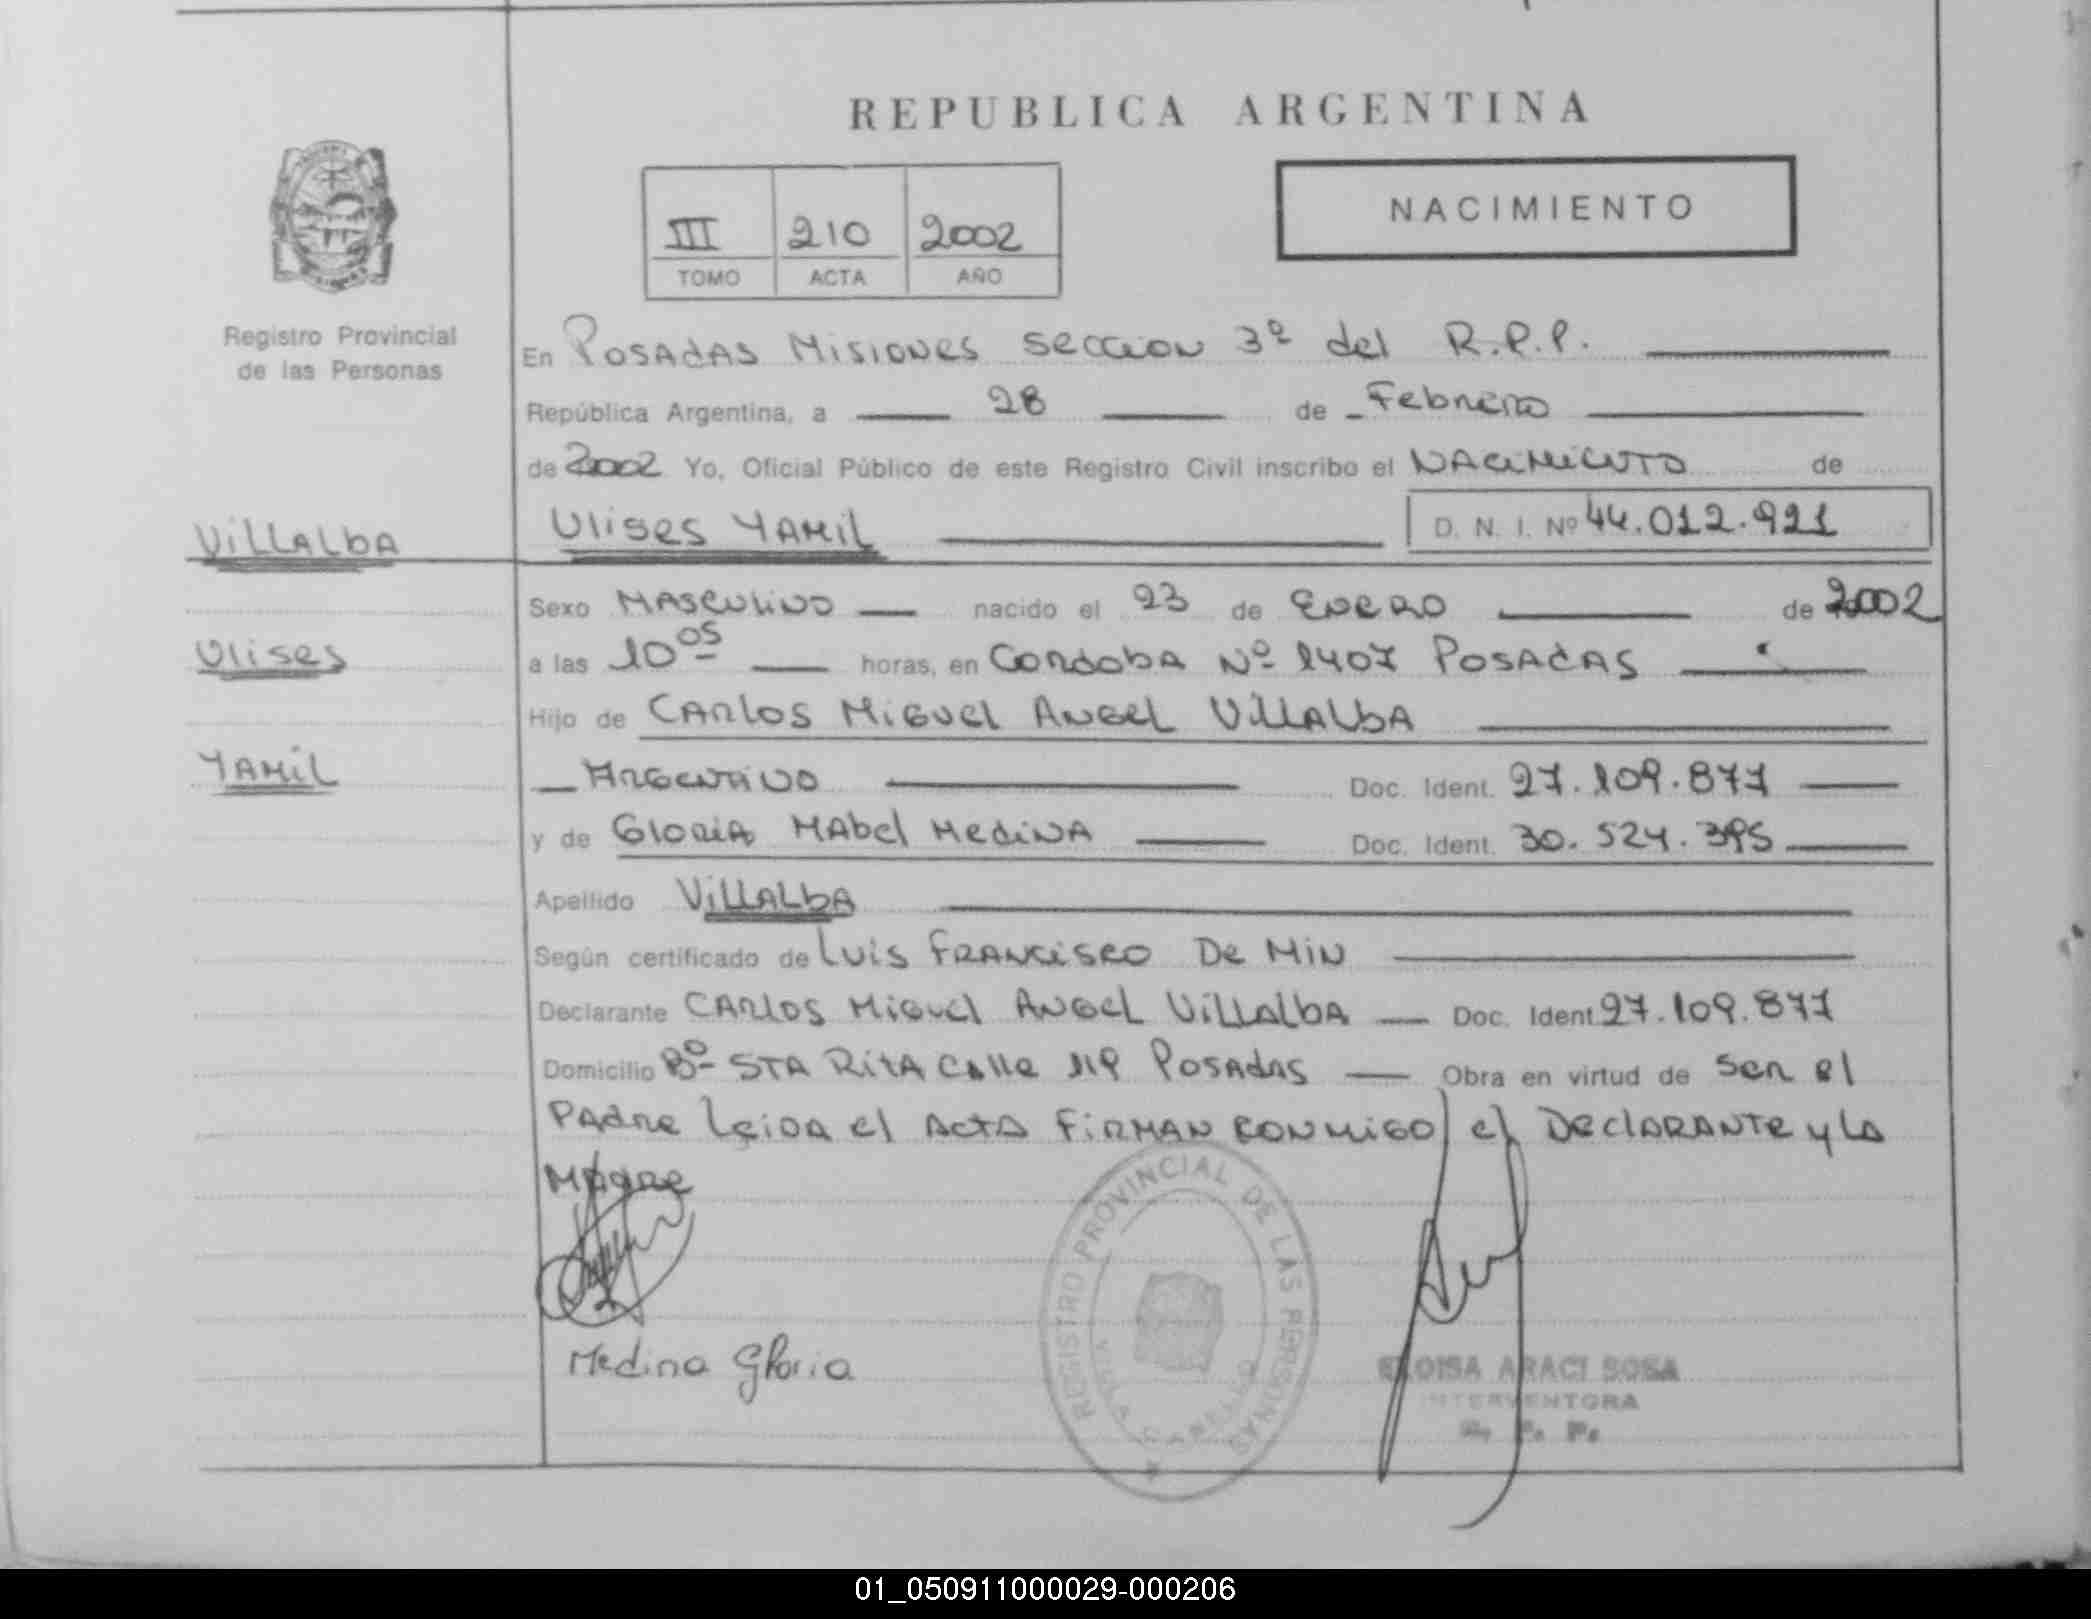 REPUBLICA ARGENTINA
NACIMIENTO
III 210 2002
TOMO ACTA AÑO
Registro Provincial
de las Personas
En Posadas Misiones seccion 3º del R.P.P.
República Argentina, a 28 de Febrero
de 2002 Yo, Oficial Público de este Registro Civil inscribo el Nacimiento de
Villalba
Ulises Yamil D. N. I. Nº 44.012.921
Sexo Masculino nacido el 23 de Enero de 2002
Ulises
a las 10 05 horas, en Cordoba Nº 1407 Posadas
Hijo de Carlos Miguel Angel Villalba
Yamil
Argentino Doc. Ident. 27.109.877
y de Gloria Mabel Medina Doc. Ident. 30.524.395
Apellido Villalba
Según certificado de Luis Francisco De Min
Declarante Carlos Miguel Angel Villalba Doc. Ident. 27.109.877
Domicilio Bº Sta Rita Calle 119 Posadas Obra en virtud de ser el
Padre leida el acta firman conmigo el Declarante y la
Madre
REGISTRO PROVINCIAL DE LAS PERSONAS
Medina Gloria
ELOISA ARACI SOSA
INTERVENTORA
R. P. P.
01_050911000029-000206